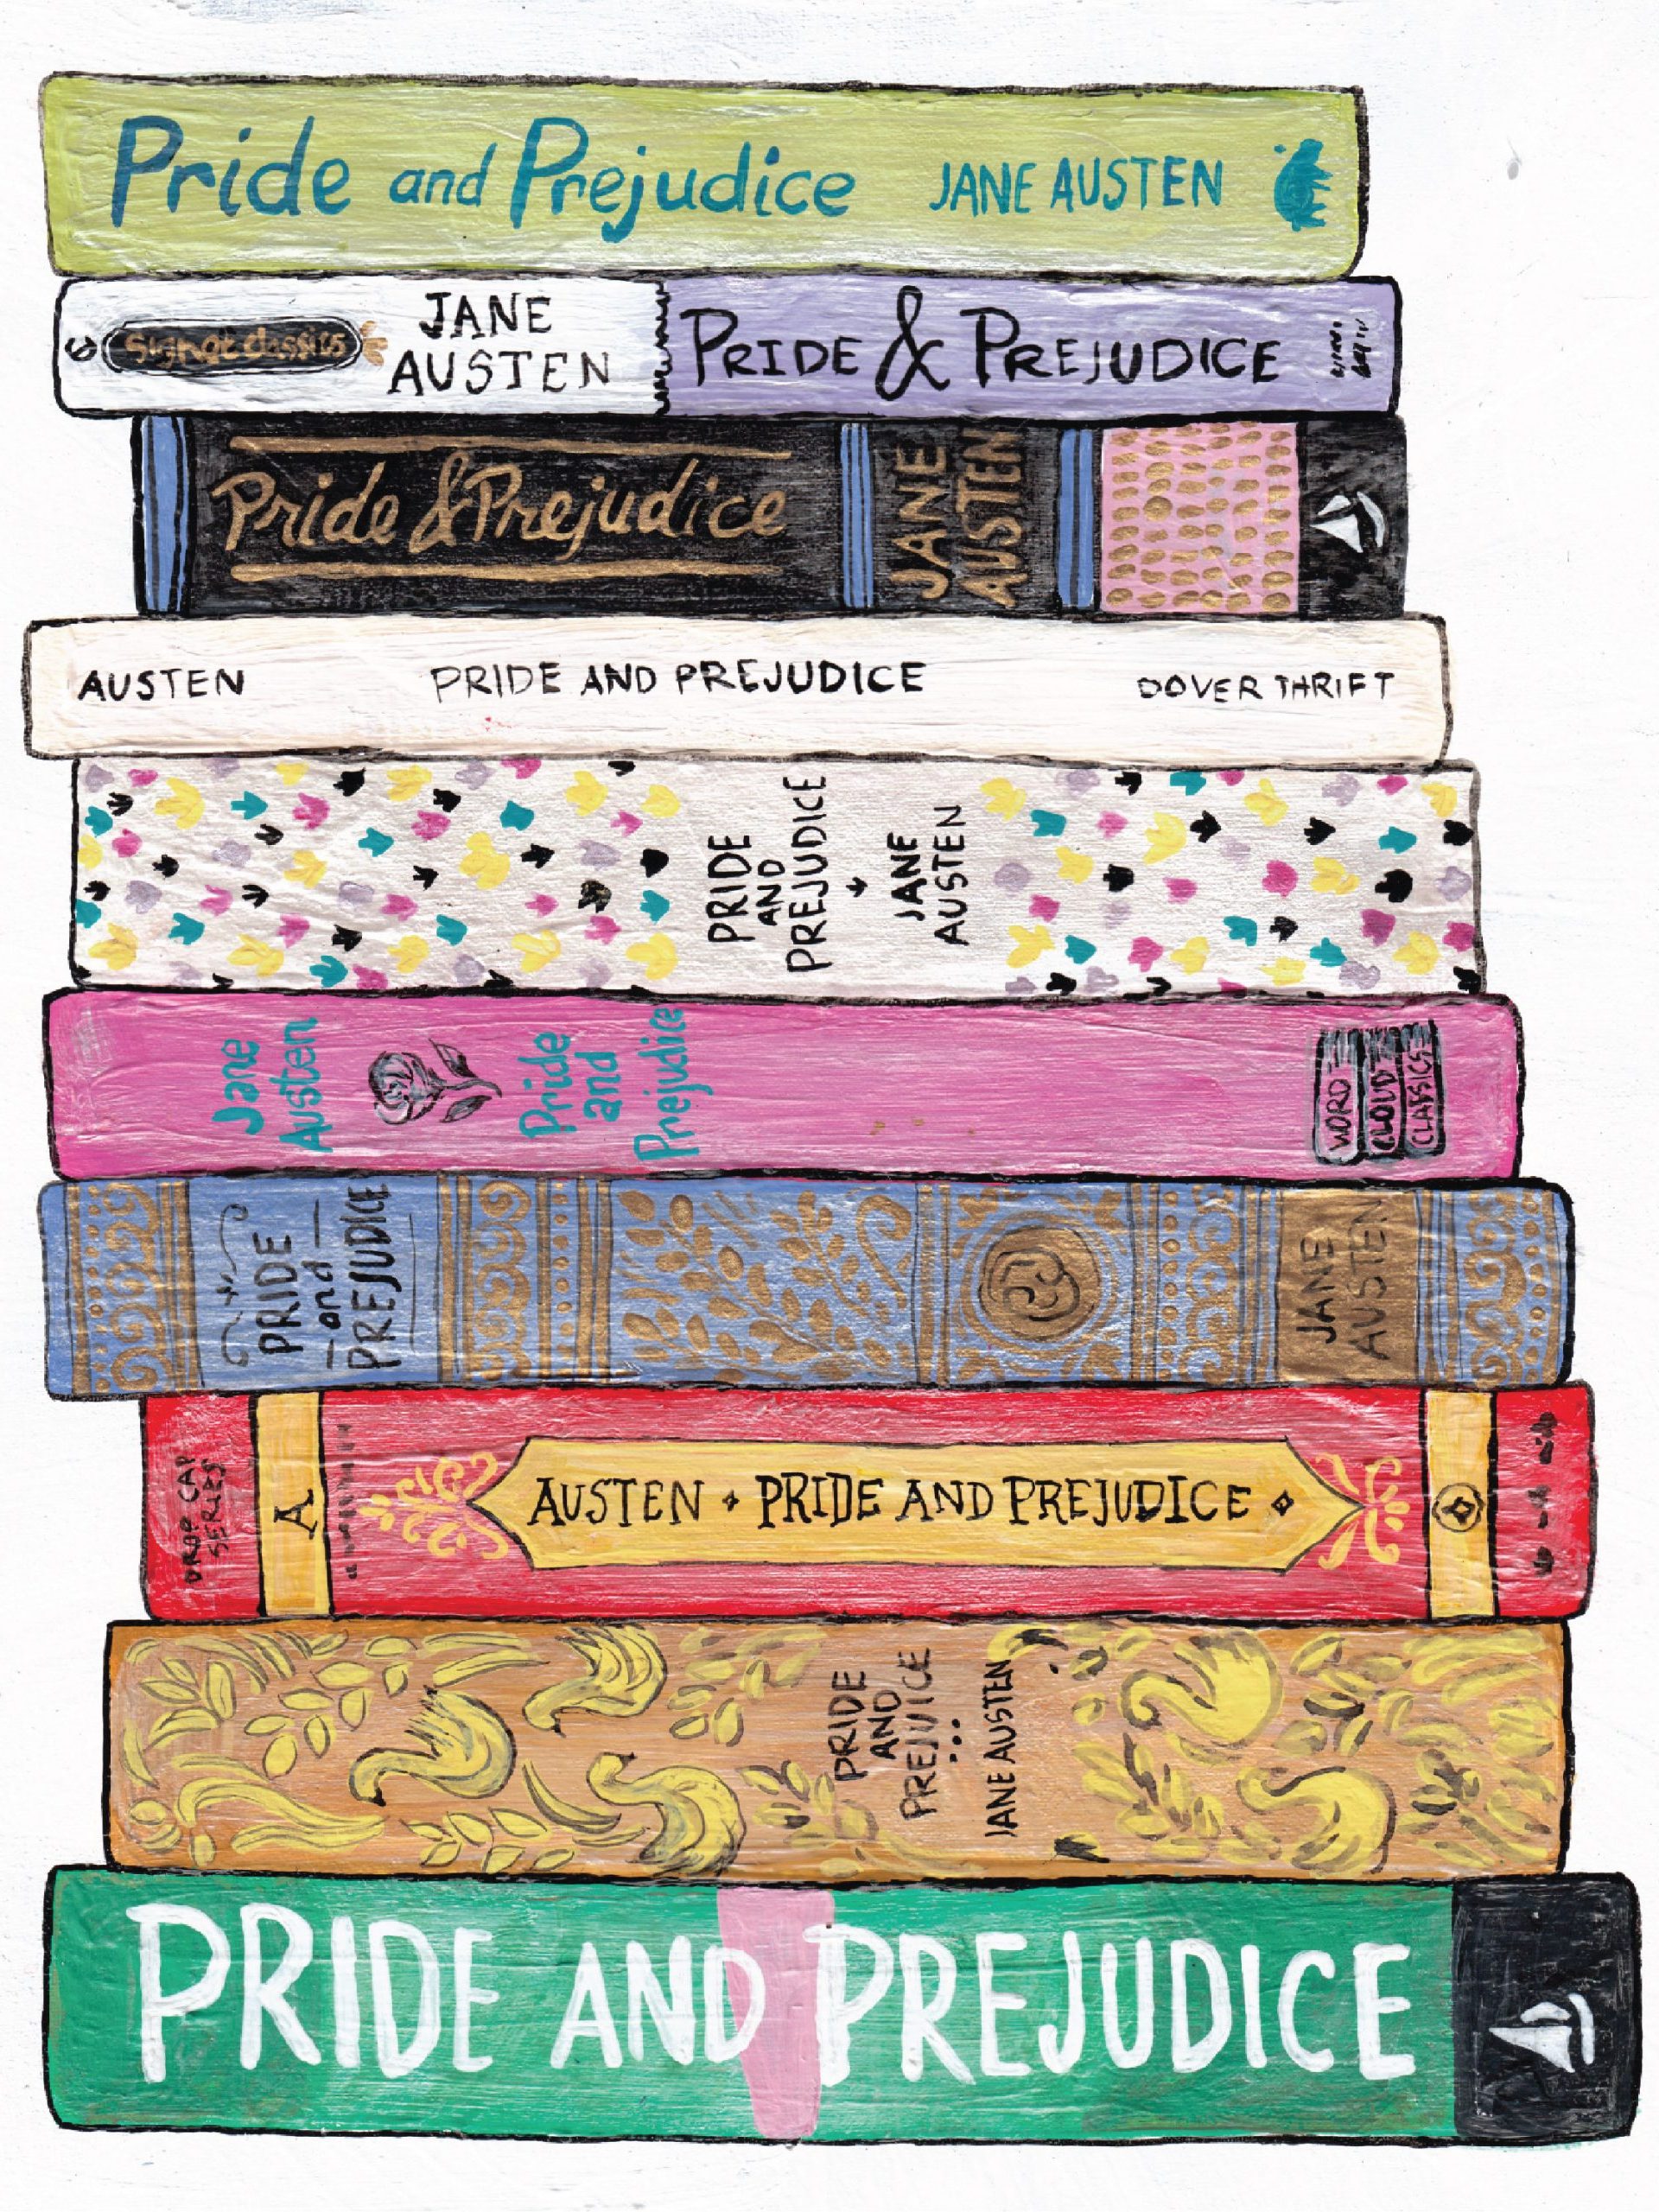 Pride and Prejudice JANE AUSTEN
Signet Classics
JANE
AUSTEN
PRIDE & PREJUDICE
Pride & Prejudice
JANE
AUSTEN
AUSTEN PRIDE AND PREJUDICE DOVER THRIFT
PRIDE
AND
PREJUDICE
JANE
AUSTEN
Jane
Austen
Pride
and
Prejudice
WORD
CLOUD
CLASSICS
PRIDE
and
PREJUDICE
JANE
AUSTEN
DROP CAP
SERIES
A
AUSTEN PRIDE AND PREJUDICE
PRIDE
AND
PREJUVICE
JANE AUSTEN
PRIDE AND PREJUDICE